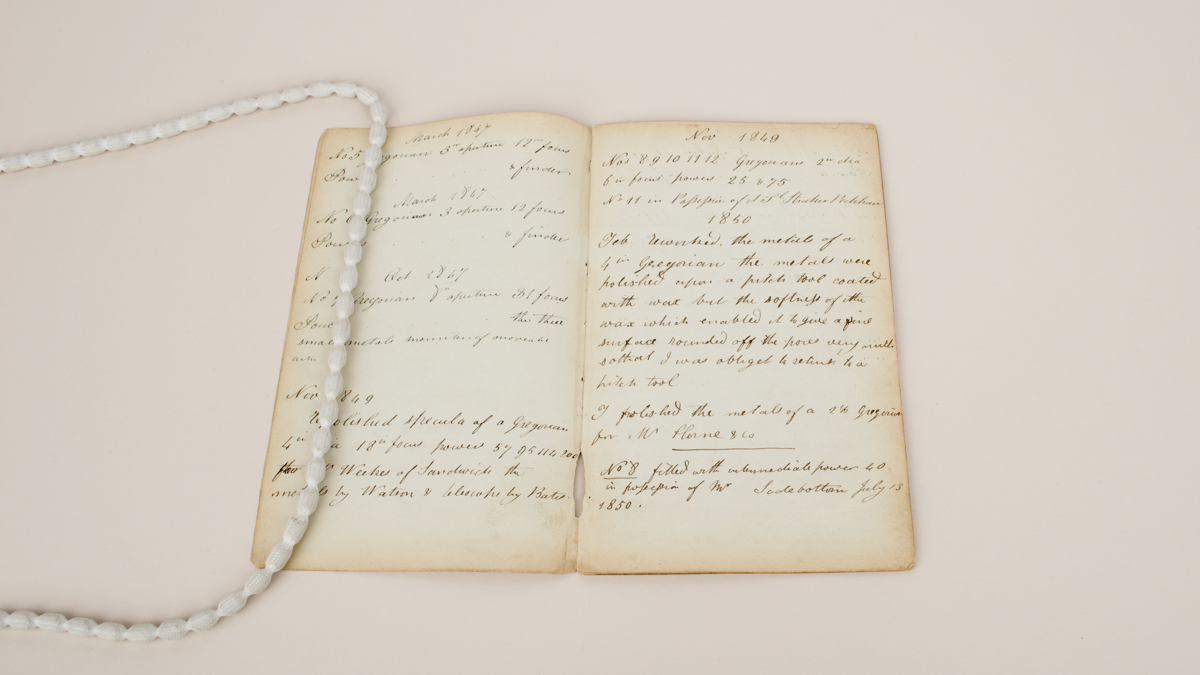 March 1847
No 5 Gregorian 3 in aperture 12 in focus
Pow & finder
March 1847
No 6 Gregorian 3 aperture 12 focus
Powers & finder
N Oct 1847
No 7 Gregorian aperture focus
the three
small metals
Nov 1849
Repolished specula of a Gregorian
4 in 18 in focus powers 57 95 114 200
for Weekes of Sandwich the
by Watson & telescope by Bates.
Nov 1849
Nos 8 9 10 11 12 Gregorians 2 in dia
6 in focus powers 25 & 75
No 11 in Possession of
1850
Feb reworked, the metals of a
4 in Gregorian the metals were
polished upon a pitch tool coated
with wax but the softness of the
wax which enabled it to give a fine
surface rounded off the pores very much
so that I was obliged to return to a
pitch tool
I polished the metals of a Gregorian
for Mr Horne & Co
No 8 fitted with intermediate power 40.
in possession of Mr July 13
1850.